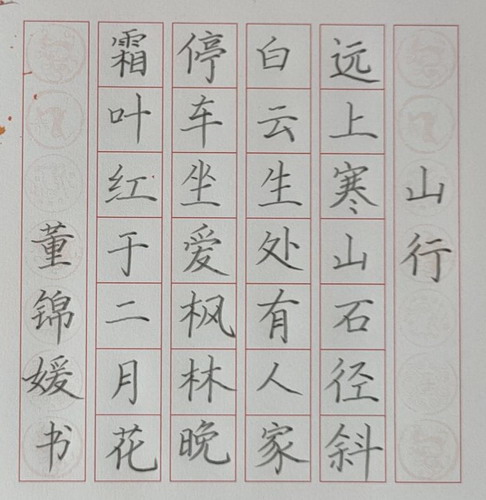 山行
远上寒山石径斜
白云生处有人家
停车坐爱枫林晚
霜叶红于二月花
董锦媛书